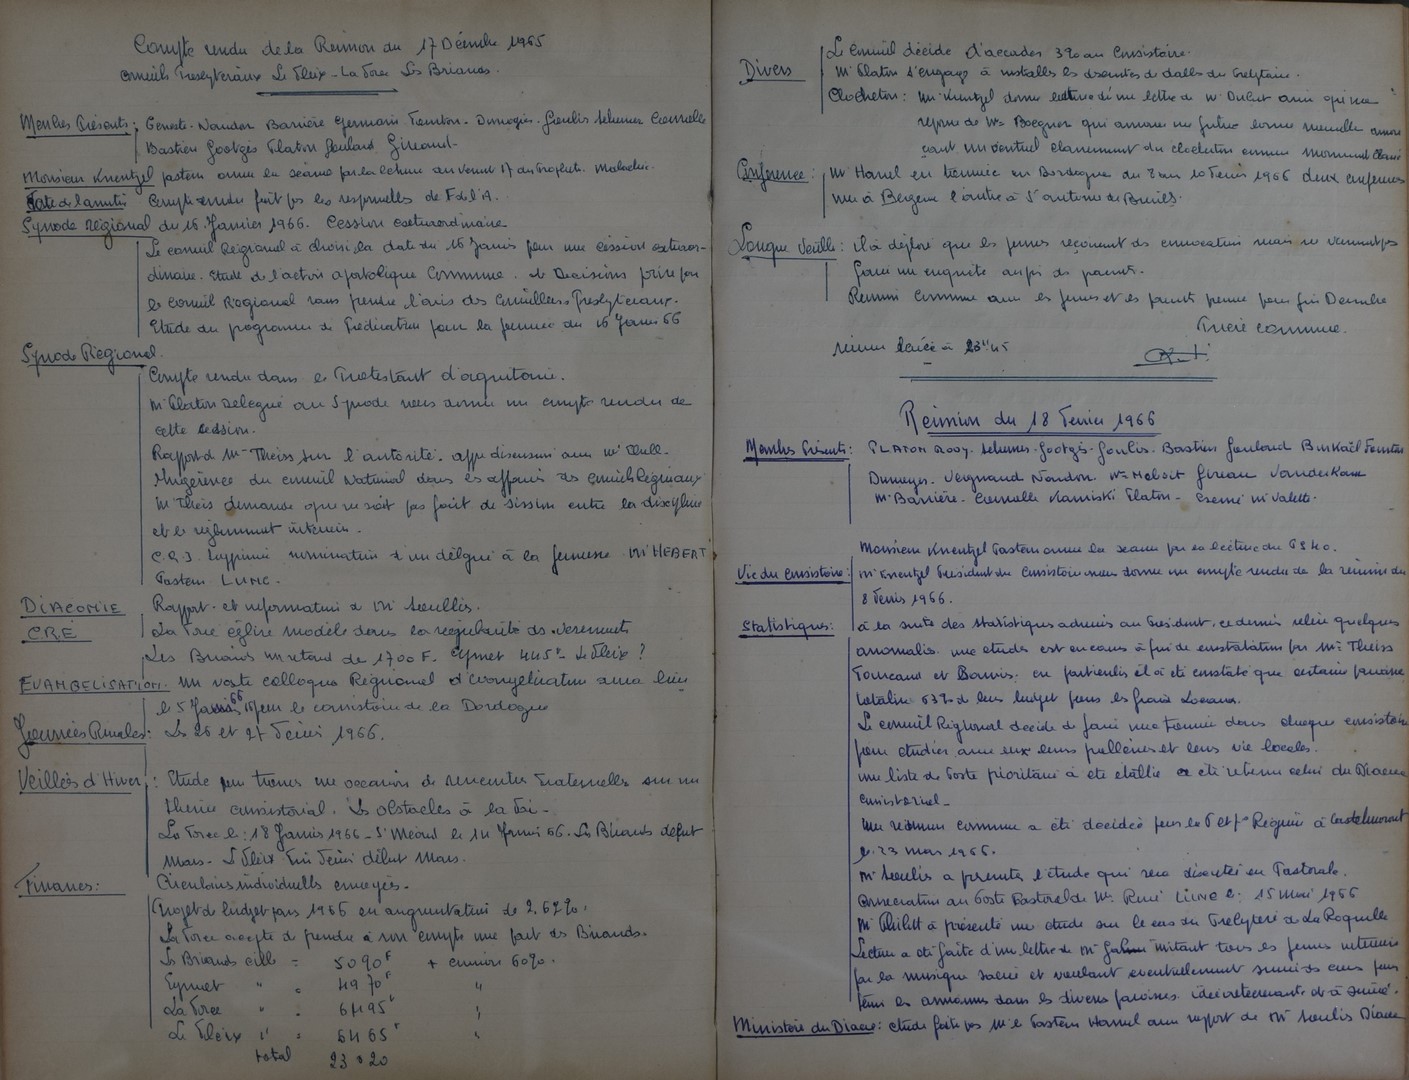 Compte rendu de la Reunion du 17 Décembre 1965
Conseils Presbyteraux Le Fleix - La Force Les Briands.
Membres Présents: Geneste. Naudon Barrière Germain Goulis Scherrer Cournelle
Bastien Platon Goulard Gireaud.
Monsieur Knentzel pasteur ouvre la seance par la lecture au verset 17 du Prophete. Malachie.
Compte rendu fait par les responsables de
Synode régional du 16 Janvier 1966. Cession extraordinaire
Le conseil Régional à choisi la date du 16 Janvis pour une cession extraor-
dinaire. Etude de l'action apostolique Commune. Decisions prise par
le conseil Régional sans prendre l'avis des Conseillers Presbyteraux.
Etude du programme de Prédication pour la journée du 16 Janvis 66
Synode Régional.
Compte rendu dans le Protestant d'aquitaine.
Mr Platon Delegué au Synode nous donne un compte rendu de
cette session.
Rapport d Mr Theiss sur l'autorité.
Ingérence du conseil National dans les affaires des Conseils Régionaux
Mr Theis demande que ne soit pas fait de entre la discipline
et le règlement intérieur.
nomination d'un délégué à la jeunesse Mr HEBERT
Pasteur
DIACONIE Rapport et information de Mr
CRE La Force église modèle dans la régularité ds versements
Les Briands un retard de 1700 F. Eymet 445F Le Fleix ?
EVANGELISATION. Un vaste colloque Régional d'évangelisation aura lieu
le 5 66 pour le consistoire de la Dordogne
Journées Rurales: Les 26 et 27 Février 1966.
Veillées d'Hiver: Etude pour trouver une occasion de rencontres Fraternelles sur un
theme consistorial. Les obstacles à la Foi -
La Force le: 18 Janvis 1966 - St Méard le 14 Janvis 66. Les Briands début
Mars - Le Fleix Fin début Mars.
Finances: Circulaires individuelles envoyées.
Projet de budget pour 1966 en augmentation de 2,62%.
La Force accepte de prendre à son compte une part des Briands.
Les Briands = 5090F + 60%.
Eymet " = 4970F "
La Force " = 6495F "
Le Fleix " = 6465F "
total 23020
Divers Le Conseil décide d'accorder 3% au Consistoire.
Mr Platon s'engage à installer les de dalles du
Clocheton: Mr Knentzel donne lecture d'une lettre de Mr ainsi qu'une
reponse de Mr Boegner qui annonce une
çant un eventuel classement du clocheton comme monument
Conférence: Mr Harrel en tournée en Dordogne du 8 au 10 Fevris 1966 deux conferences
une à Bergerac l'autre à St antoine de Breuilh.
Longue Veille: il à déploré que les jeunes reçoivent des convocations mais ne viennent pas
Faire une enquête auprès des parents.
Reunion commune avec les jeunes et les parents prevue pour fin Decembre
Prière commune.
séance levée à 23H45
Reunion du 18 Fevrier 1966
Membres Présents: PLATON Scherrer. Goulis. Bastien Goulard
Vergnaud Naudon. Gireau
Mr Barrière - Cournelle Kaminski Platon - Mr Valette.
Monsieur Knentzel Pasteur ouvre la seance par la lecture du PS 40.
Vie du Consistoire: Mr Knentzel President du Consistoire nous donne un compte rendu de la reunion du
8 Fevris 1966.
Statistiques: à la suite des statistiques adressées au President, ce dernis relève quelques
anomalies. une etudes est en cours à fin de constatation par Mr Theiss
en particulis il à été constaté que certaine paroisse
63% de leur budget pour les frais Locaux.
Le conseil Régional decide de faire une dans chaque consistoire
pour etudier avec eux leurs problèmes et leurs vie locales.
une liste de Poste prioritaire à été établie a été retenu celui du Diacre
Consistorial.
Une réunion commune a été décidée pour la 6 et 7e Région à Castelmoront
le 23 mars 1966.
Mr a presenté l'étude qui sera discutée en Pastorale.
Consecration au Poste Pastoral de Mr René le: 15 Mai 1966
Mr à présenté une etude sur le cas du Presbytère de La Roquille
Lecture a été faite d'une lettre de Mr invitant tous les jeunes
par la musique sacrée et voulant eventuellement
les dans les diverses paroisses. idée interessante et à suivre.
Ministère du Diacre: etude faite par Mr le Pasteur Harrel avec rapport de Mr Diacre